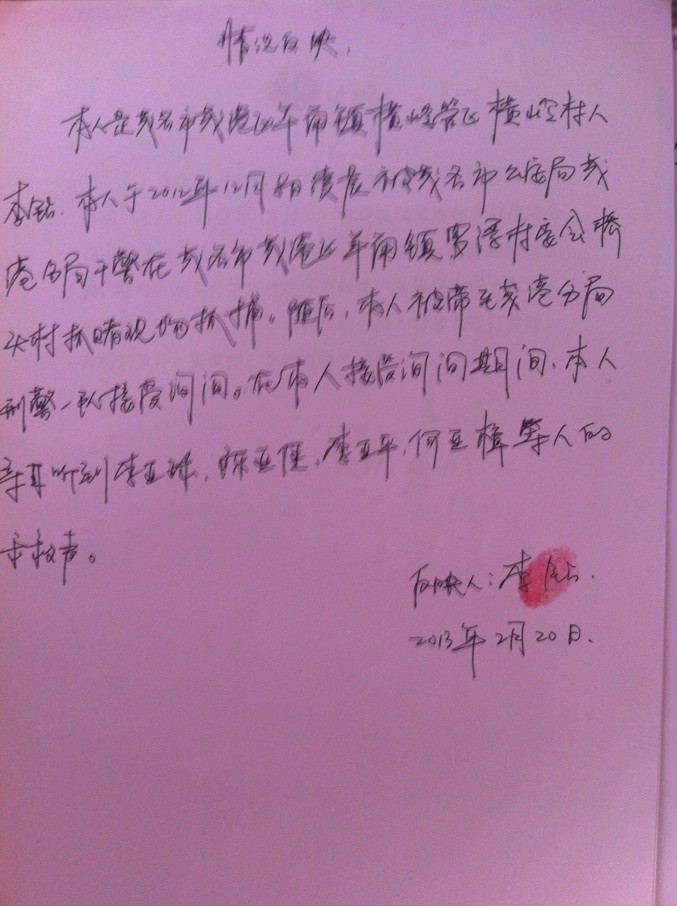 情况反映,
本人是茂名市茂港区羊角镇横岭管区横岭村人
李钻. 本人于2012年12月8日凌晨被茂名市公安局茂
港分局干警在茂名市茂港区羊角镇罗浮村委会桥
头村抓赌现场抓捕。随后,本人被带至茂港分局
刑警一队接受询问。在本人接受询问期间、本人
亲耳听到李亚球,李亚平,何亚樟等人的
求救声。
反映人:李钻.
2013年2月20日.